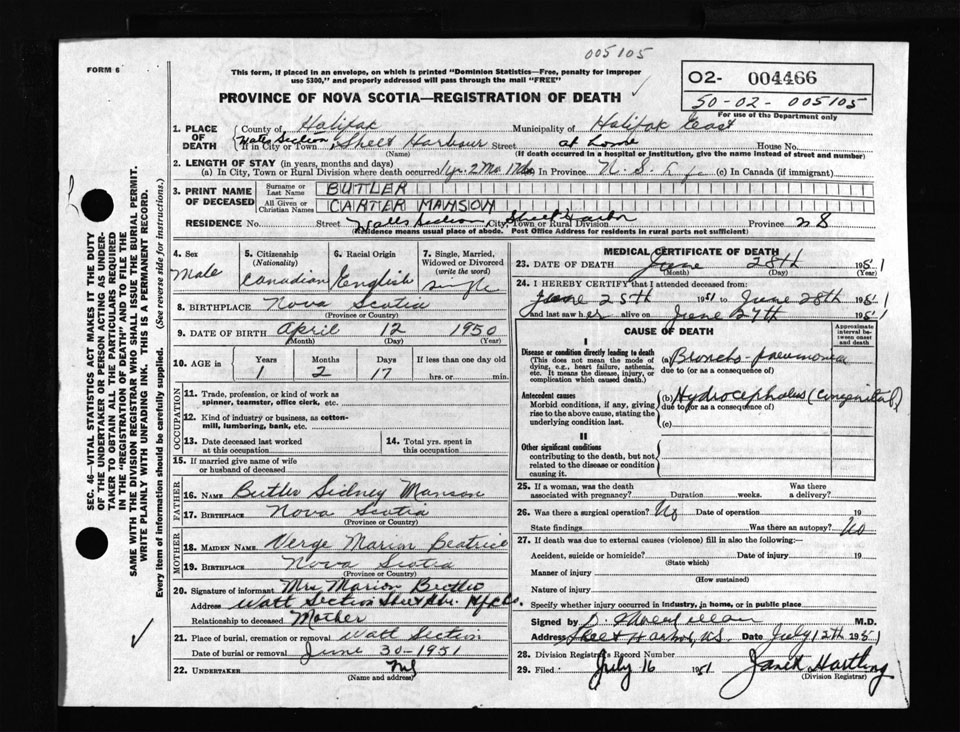 005105
FORM 6
This form, if placed in an envelope, on which is printed "Dominion Statistics—Free, penalty for improper
use $300," and properly addressed will pass through the mail "FREE"
O2- 004466
50-02-005105
For use of the Department only
PROVINCE OF NOVA SCOTIA—REGISTRATION OF DEATH
1. PLACE OF DEATH County of Halifax Municipality of Halifax East
Watt Section in City or Town Sheet Harbour Street at home House No.
(Name) (If death occurred in a hospital or institution, give the name instead of street and number)
2. LENGTH OF STAY (in years, months and days)
(a) In City, Town or Rural Division where death occurred 1yr. 2 Mo. 17 (b) In Province N. S. Life (c) In Canada (if immigrant)
3. PRINT NAME OF DECEASED Surname or Last Name BUTLER
All Given or Christian Names CARTER MANSON
RESIDENCE No. Street Watts Section City, Town or Rural Division Sheet Harbor Province N S
(Residence means usual place of abode. Post Office Address for residents in rural parts not sufficient)
4. Sex Male
5. Citizenship (Nationality) Canadian
6. Racial Origin English
7. Single, Married, Widowed or Divorced (write the word) single
8. BIRTHPLACE Nova Scotia
(Province or Country)
9. DATE OF BIRTH April 12 1950
(Month) (Day) (Year)
10. AGE in Years Months Days If less than one day old
1 2 17 hrs. or min.
OCCUPATION
11. Trade, profession, or kind of work as
spinner, teamster, office clerk, etc.
12. Kind of industry or business, as cotton-
mill, lumbering, bank, etc.
13. Date deceased last worked
at this occupation
14. Total yrs. spent in
this occupation
15. If married give name of wife
or husband of deceased
FATHER
16. NAME Butler Sidney Manson
17. BIRTHPLACE Nova Scotia
(Province or Country)
MOTHER
18. MAIDEN NAME Verge Marion Beatrice
19. BIRTHPLACE Nova Scotia
(Province or Country)
20. Signature of informant Mrs Marion Butler
Address Watt Section Sheet Hbr. Hfx Co.
Relationship to deceased Mother
21. Place of burial, cremation or removal Watt Section
Date of burial or removal June 30-1951
22. UNDERTAKER
(Name and address)
MEDICAL CERTIFICATE OF DEATH
23. DATE OF DEATH June 28th 1951
(Month) (Day) (Year)
24. I HEREBY CERTIFY that I attended deceased from:
June 25th 1951 to June 28th 1951
and last saw her alive on June 27th 1951
CAUSE OF DEATH
Approximate interval between onset and death
I
Disease or condition directly leading to death
(This does not mean the mode of
dying, e.g., heart failure, asthenia,
etc. It means the disease, injury, or
complication which caused death.
(a) Broncho-pneumonia
due to (or as a consequence of)
Antecedent causes
Morbid conditions, if any, giving
rise to the above cause, stating the
underlying condition last.
(b) Hydrocephalus (congenital)
due to (or as a consequence of)
(c)
II
Other significant conditions
contributing to the death, but not
related to the disease or condition
causing it.
25. If a woman, was the death
associated with pregnancy? Duration weeks. Was there
a delivery?
26. Was there a surgical operation? No Date of operation 19
State findings Was there an autopsy? No
27. If death was due to external causes (violence) fill in also the following:—
Accident, suicide or homicide? Date of injury 19
(State which)
Manner of injury
(How sustained)
Nature of injury
Specify whether injury occurred in Industry, in home, or in public place
Signed by M.D.
Address Sheet Harbor, N.S. Date July 12th 1951
28. Division Registrar's Record Number
29. Filed July 16 1951 Janet Hartling
(Division Registrar)
SEC. 46—VITAL STATISTICS ACT MAKES IT THE DUTY
OF THE UNDERTAKER OR PERSON ACTING AS UNDER-
TAKER TO OBTAIN ALL THE PARTICULARS REQUIRED
IN THE "REGISTRATION OF DEATH" AND TO FILE THE
SAME WITH THE DIVISION REGISTRAR WHO SHALL ISSUE THE BURIAL PERMIT.
WRITE PLAINLY WITH UNFADING INK. THIS IS A PERMANENT RECORD.
Every item of information should be carefully supplied. (See reverse side for instructions.)